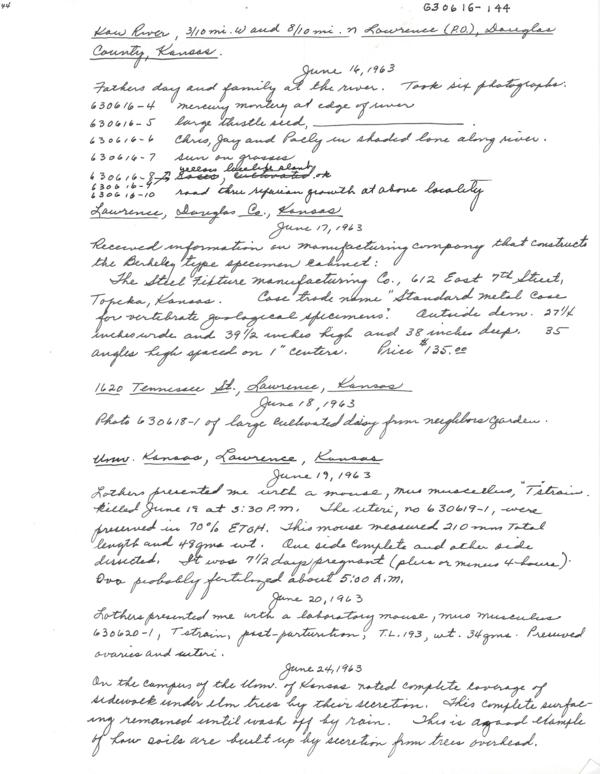 44
630616-144
Kaw River, 3/10 mi. w and 8/10 mi. n Lawrence (P.O.), Douglas
County, Kansas.
June 16, 1963
Fathers day and family at the river. Took six photographs.
630616-4 mercury montery at edge of river
630616-5 large thistle seed, ____________.
630616-6 Chris, Jay and Pacly in shaded lane along river.
630616-7 sun on grasses
yellow
630616-8 , cultivated, ok
630616-9
630616-10 road thru riparian growth at above locality
Lawrence, Douglas Co., Kansas
June 17, 1963
Received information on manufacturing company that constructs
the Berkeley type specimen cabinet:
The Steel Fixture Manufacturing Co., 612 East 7th Street,
Topeka, Kansas. Case trade name "Standard Metal Case
for vertebrate zoological specimens". Outside dem. 27 1/4
inches wide and 39 1/2 inches high and 38 inches deep. 35
angles high spaced on 1" centers. Price $135.00
1620 Tennessee St., Lawrence, Kansas
June 18, 1963
Photo 630618-1 of large cultivated daisy from neighbors garden.
Univ. Kansas, Lawrence, Kansas
June 19, 1963
Lothers presented me with a mouse, mus muscellus, "T" strain
killed June 19 at 3:30 P.M. The uteri, no 630619-1, were
preserved in 70% ETOH. This mouse measured 210 mm Total
length and 48 gms wt. One side complete and other side
dissected. It was 7 1/2 days pregnant (plus or minus 4-hours).
Ova probably fertilized about 5:00 A.M.
June 20, 1963
Lothers presented me with a laboratory mouse, mus musculus
630620-1, T strain, post-parturition, T.L. 193, wt. 34 gms. Preserved
ovaries and uteri.
June 24, 1963
On the campus of the Univ. of Kansas noted complete coverage of
sidewalk under elm trees by their secretion. This complete surfac-
ing remained until wash off by rain. This is a good example
of how soils are built up by secretion from trees overhead.